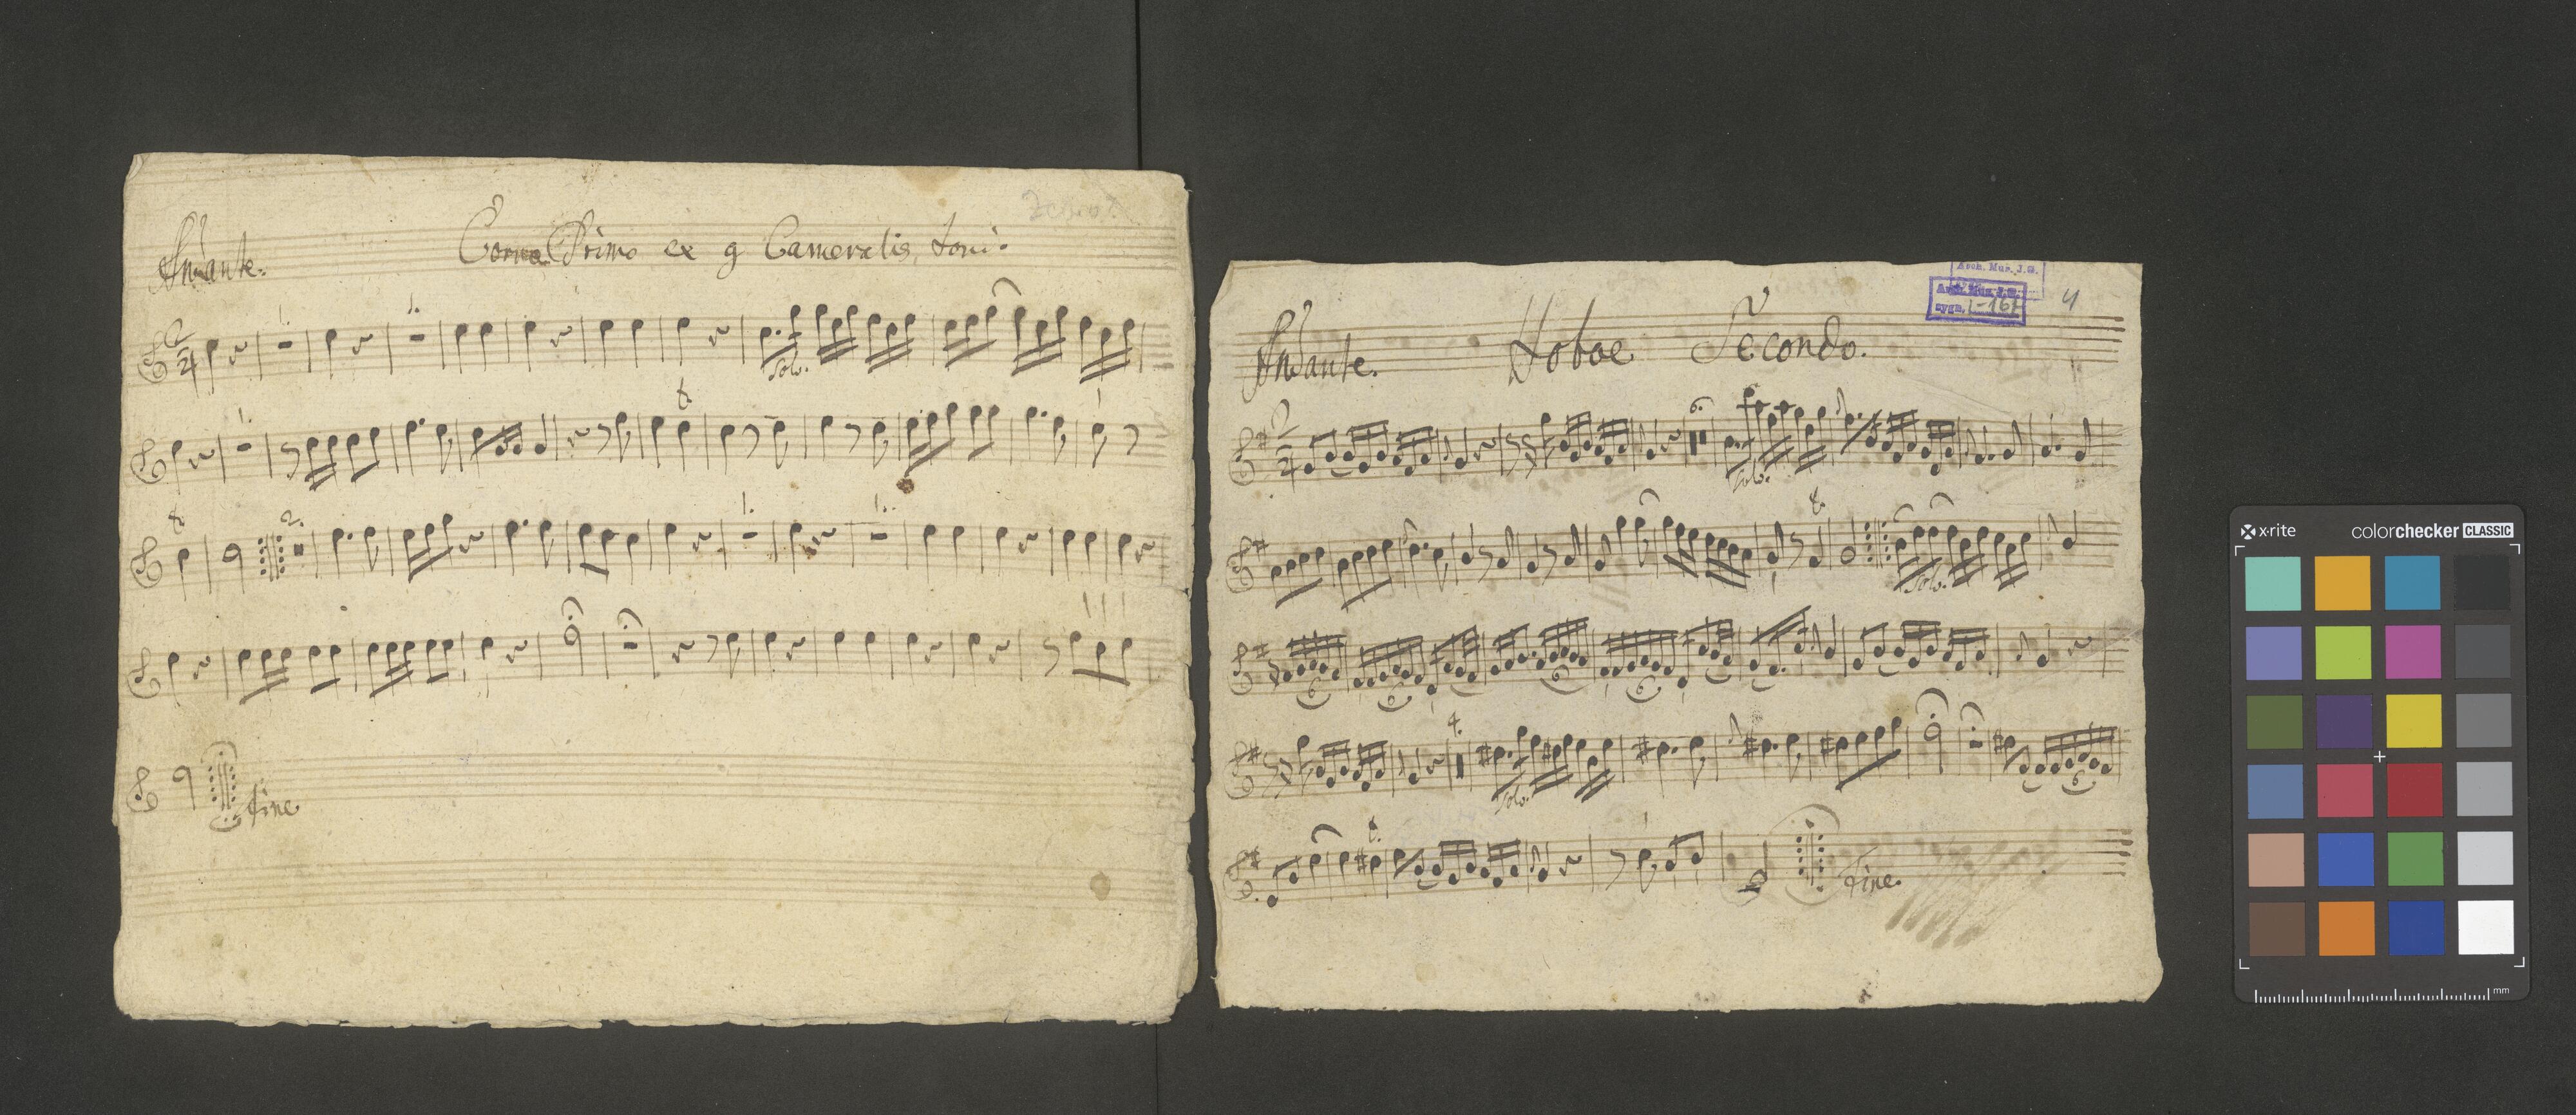 Andante.
Corno Primo ex g Cameralis toni.
1.
1.
2
4
Solo.
1
2.
1.
1.
fine
Arch. Mus. J.G.
Arch. Mus. J.G.
sygn. I-167
4
Andante.
Hoboe Secondo.
2
4
6.
Solo.
Solo.
6
6
6
6
4.
Solo.
6
Fine.
x-rite
colorchecker CLASSIC
mm